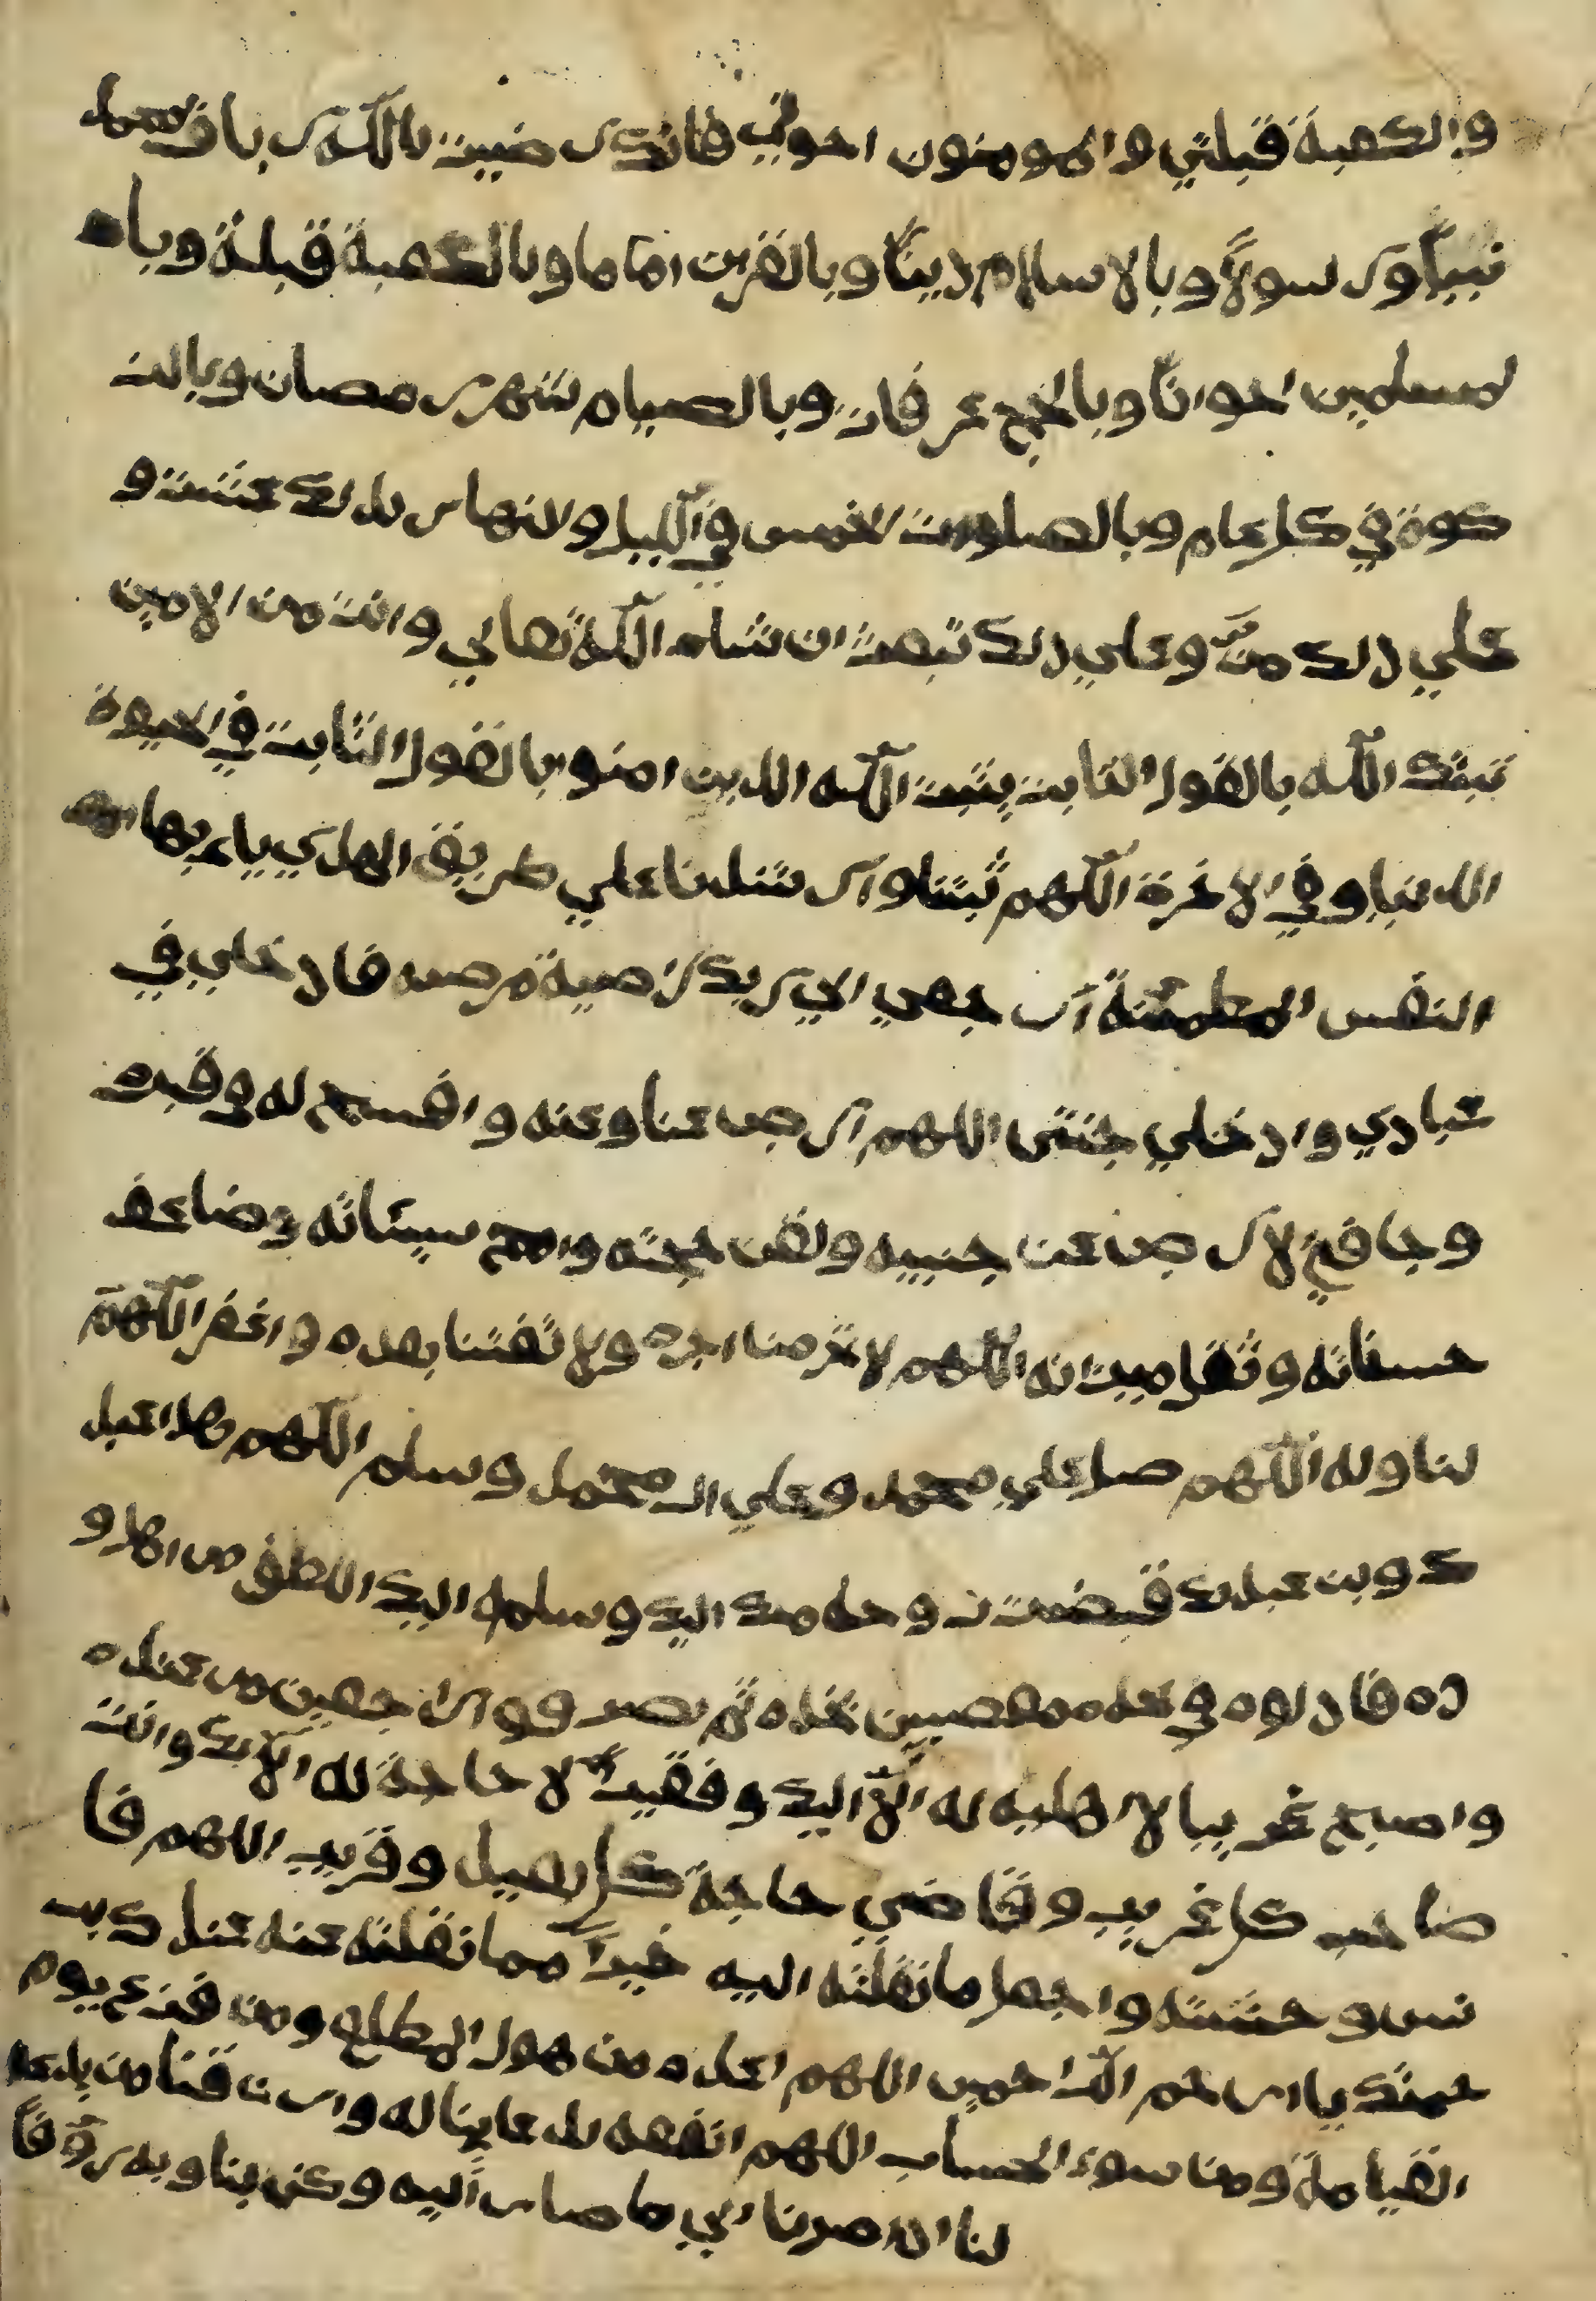 والكعبة قبلتي والمومنون اخواني فانك رضيت بالله ربا وبمحمد
نبياً ورسولاً وبالاسلام ديناً وبالقرءن اماما وبالكعبة قبلة وبا
لمسلمين اخواناً وبالحج عرفات وبالصيام شهر رمضان وبالز
كوة في كل عام وبالصلوات الخمس في الليل والنهار بذلك عشت و
علي ذلك متّ وعلي ذلك تبعث ان شاء الله تعالي وانت من الامين
ثبتك الله بالقول الثابت يثبت الله الذين امنوا بالقول الثابت في الحيوة
الدنيا وفي الاخرة اللهم ثبتنا وارشدنا علي طريق الهدي يا ايها
النفس المطمئنة ارجعي الي ربك راضية مرضية فادخلي في
عبادي وادخلي جنتي اللهم ارض عنا وعنه وافسح له في قبره
وجافي الارض عن جنبيه ولقن حجته وامح سيئاته وضاعف
حسناته وثقل ميزانه اللهم لا تحرمنا اجره ولا تفتنا بعده واغفر اللهم
لنا وله اللهم صل علي محمد وعلي ال محمد وسلم اللهم هذا عبد
ك وبن عبدك قبضت روحه منك اليك وسلمه اليك اهل و
ده فادلوه في لحده ثم نصرفوا راجعين من عنده
واصبح غريبا لا له الا اليك وفقيراً لا حاجة له الا بك وانت
صاحب كل غريب وقاضي حاجة كل بعيد وقريب اللهم فا
نس وحشته واجعل ما نقلته اليه خيراً مما نقلته عنه عند كر
حمتك يا ارحم الراحمين اللهم اعذه من هول المطلع ومن فزع يوم
القيامة ومن سوء الحساب اللهم انفعه بدعاينا له وارزقنا من يدعا
لنا اذا صرنا الي ما صار اليه وكن بنا وبه رؤفاً